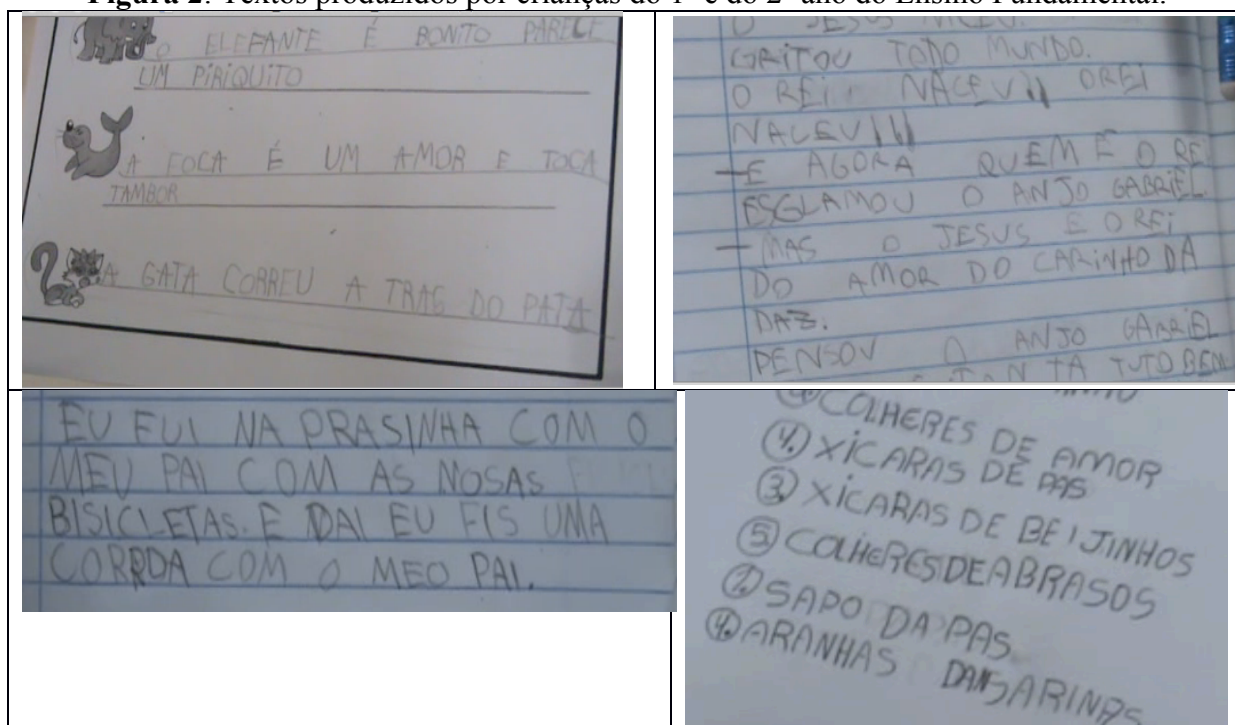 Figura 2: Textos produzidos por crianças do 1º e do 2º ano do Ensino Fundamental.
O ELEFANTE É BONITO PARECE
UM PIRIQUITO
A FOCA É UM AMOR E TOCA
TAMBOR
A GATA CORREU A TRAS DO PATA
O JESUS
GRITOU TODO MUNDO.
O REI NACEU!! OREI
NACEU!!!
-E AGORA QUEM É O REI
ESGLAMOU O ANJO GABRIEL.
-MAS O JESUS E O REI
DO AMOR DO CARINHO DA
DAZ.
PENSOU O ANJO GABRIEL
TÁ TUTO BEM
EU FUI NA PRASINHA COM O
MEU PAI COM AS NOSAS
BISICLETAS. E DAI EU FIS UMA
CORRDA COM O MEO PAI.
COLHERES DE AMOR
4. XÍCARAS DE PAS
3. XÍCARAS DE BEIJINHOS
5 COLHERES DEABRASOS
2. SAPO DA PAS
4. ARANHAS DANSARINAS